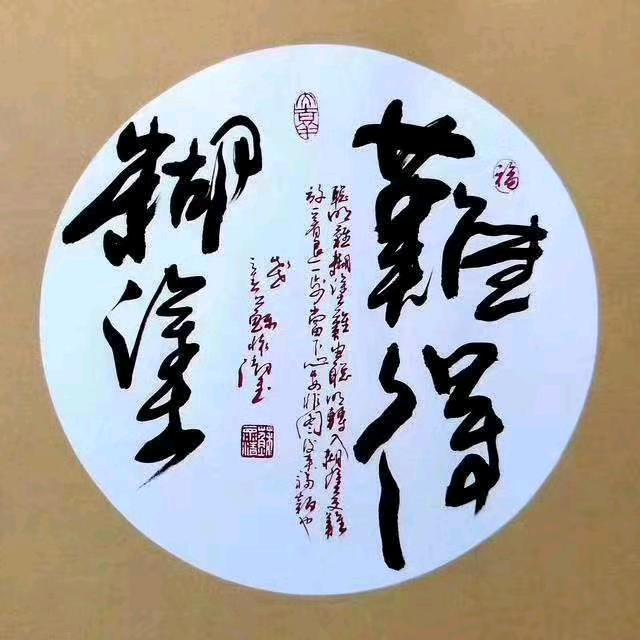 難得
糊塗
聰明難糊塗難由聰明轉入糊塗更難
放一著退一步當下心安非圖後來福報也
福